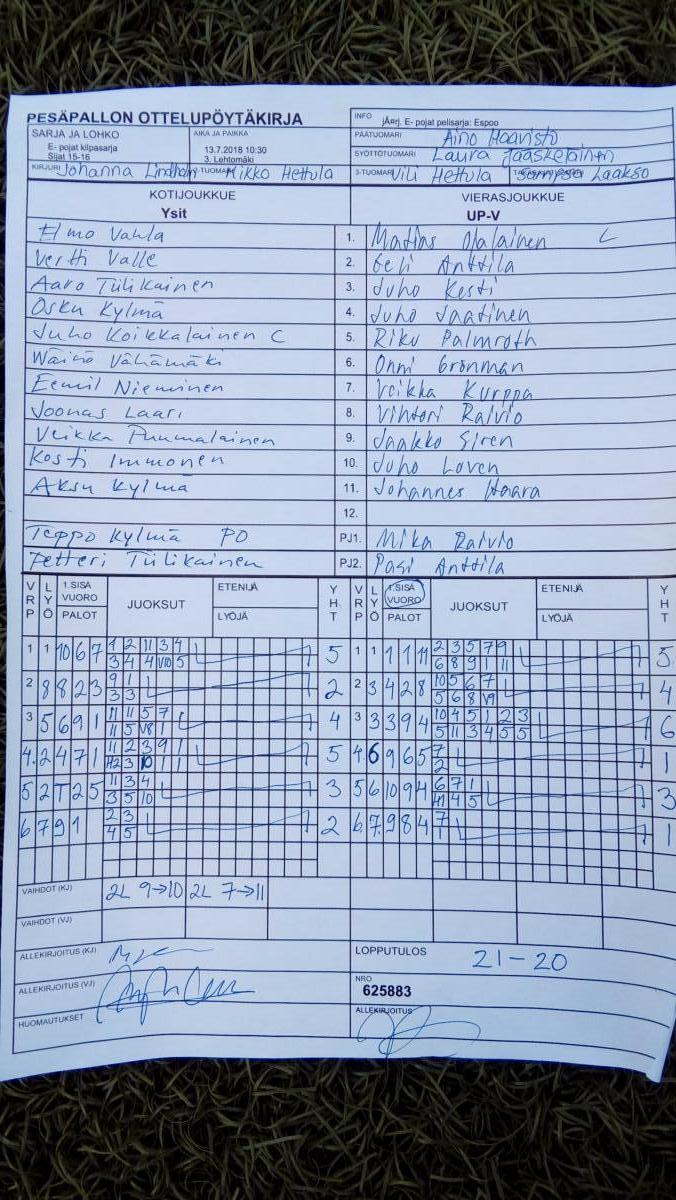 PESÄPALLON OTTELUPÖYTÄKIRJA
INFO jÄrj. E- pojat pelisarja: Espoo
SARJA JA LOHKO
E- pojat kilpasarja
Sijat 15-16
AIKA JA PAIKKA
13.7.2018 10:30
3. Lehtomäki
PÄÄTUOMARI Aino Haavisto
SYÖTTÖTUOMARI Laura Jääskeläinen
KIRJURI Johanna Lindholm 2-TUOMARI Mikko Hettula 3-TUOMARI Vili Hettula Sampsa Laakso
KOTIJOUKKUE
Ysit
VIERASJOUKKUE
UP-V
Elmo Vahla 1. Matias Ojalainen C
Vertti Valle 2. Eeli Anttila
Aaro Tiilikainen 3. Juho Kesti
Osku Kylmä 4. Juho Jaatinen
Juho Koikkalainen C 5. Riku Palmroth
Wäinö Vähämäki 6. Onni Grönman
Eemil Nieminen 7. Veikka Kurppa
Joonas Laari 8. Vihtori Raivio
Veikka Puumalainen 9. Jaakko Siren
Kosti Immonen 10. Juho Loven
Aksu Kylmä 11. Johannes Haara
12.
Teppo Kylmä PO PJ1. Mika Raivio
Petteri Tiilikainen PJ2. Pasi Anttila
VRP LYÖ 1.SISÄ VUORO PALOT JUOKSUT ETENIJÄ LYÖJÄ YHT VRP LYÖ 1.SISÄ VUORO PALOT JUOKSUT ETENIJÄ LYÖJÄ YHT
1 1 10 6 7 1 2 11 3 4 5 1 1 1 1 11 2 3 5 7 9 5
3 4 4 V10 5 6 8 9 1 11
2 8 8 2 3 9 1 2 2 3 4 2 8 10 5 6 7 4
3 3 5 6 8 V9
3 5 6 9 1 11 11 5 7 4 3 3 3 9 4 10 4 5 1 2 3 6
11 5 V8 1 5 11 3 4 5 5
4. 2 4 7 1 11 2 3 9 1 5 4. 6 9 6 5 7 1
3 10 1 1 2
5 2 T 2 5 11 3 4 3 5 6 10 9 4 6 7 1 3
3 5 10 4 5
6 7 9 1 2 3 2 6. 7. 9 8 4 7 1
4 5 1
VAIHDOT (KJ) 2L 9→10 2L 7→11
VAIHDOT (VJ)
ALLEKIRJOITUS (KJ)
LOPPUTULOS 21-20
ALLEKIRJOITUS (VJ)
NRO
625883
HUOMAUTUKSET
ALLEKIRJOITUS